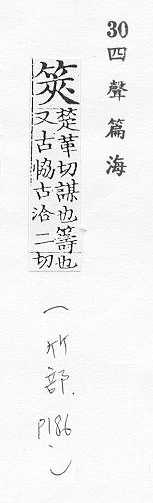 30四聲篇海
筴
楚革切謀也籌也
又古恊古洽二切
(竹部. P186.)